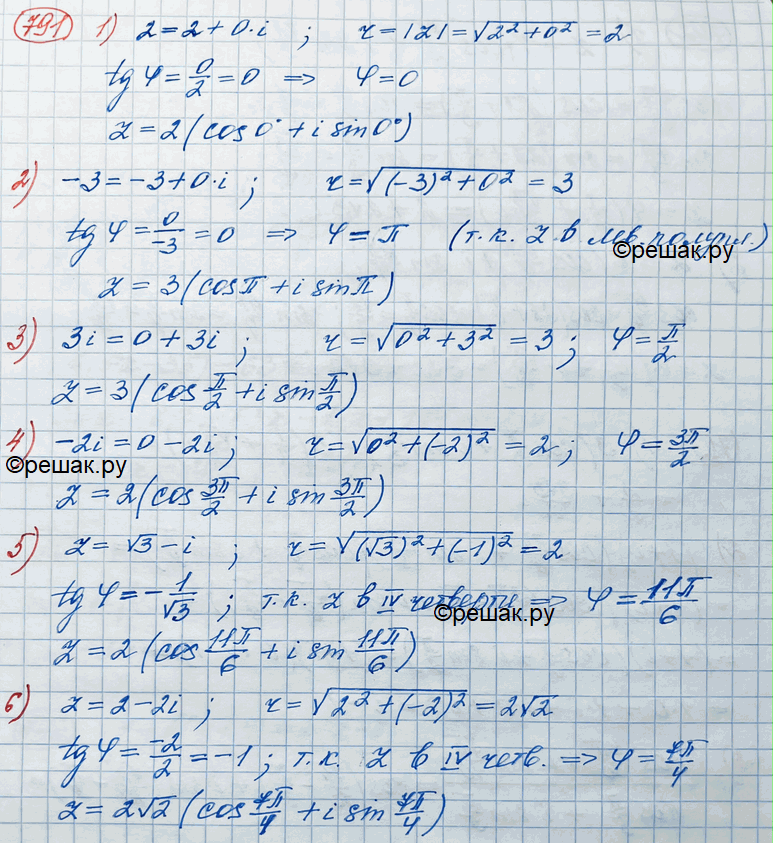 791 1) 2 = 2 + 0·i ; r = |z| = √(2² + 0²) = 2
tg φ = 0/2 = 0 ⇒ φ = 0
z = 2(cos 0° + i sin 0°)
2) -3 = -3 + 0·i ; r = √((-3)² + 0²) = 3
tg φ = 0/-3 = 0 ⇒ φ = π (т.к. z в лев. полупл.)
©решак.ру
z = 3(cos π + i sin π)
3) 3i = 0 + 3i ; r = √(0² + 3²) = 3 ; φ = π/2
z = 3(cos π/2 + i sin π/2)
4) -2i = 0 - 2i ; r = √(0² + (-2)²) = 2 ; φ = 3π/2
©решак.ру
z = 2(cos 3π/2 + i sin 3π/2)
5) z = √3 - i ; r = √((√3)² + (-1)²) = 2
tg φ = -1/√3 ; т.к. z в IV четверти ⇒ φ = 11π/6
©решак.ру
z = 2(cos 11π/6 + i sin 11π/6)
6) z = 2 - 2i ; r = √(2² + (-2)²) = 2√2
tg φ = -2/2 = -1 ; т.к. z в IV четв. ⇒ φ = 7π/4
z = 2√2 (cos 7π/4 + i sin 7π/4)